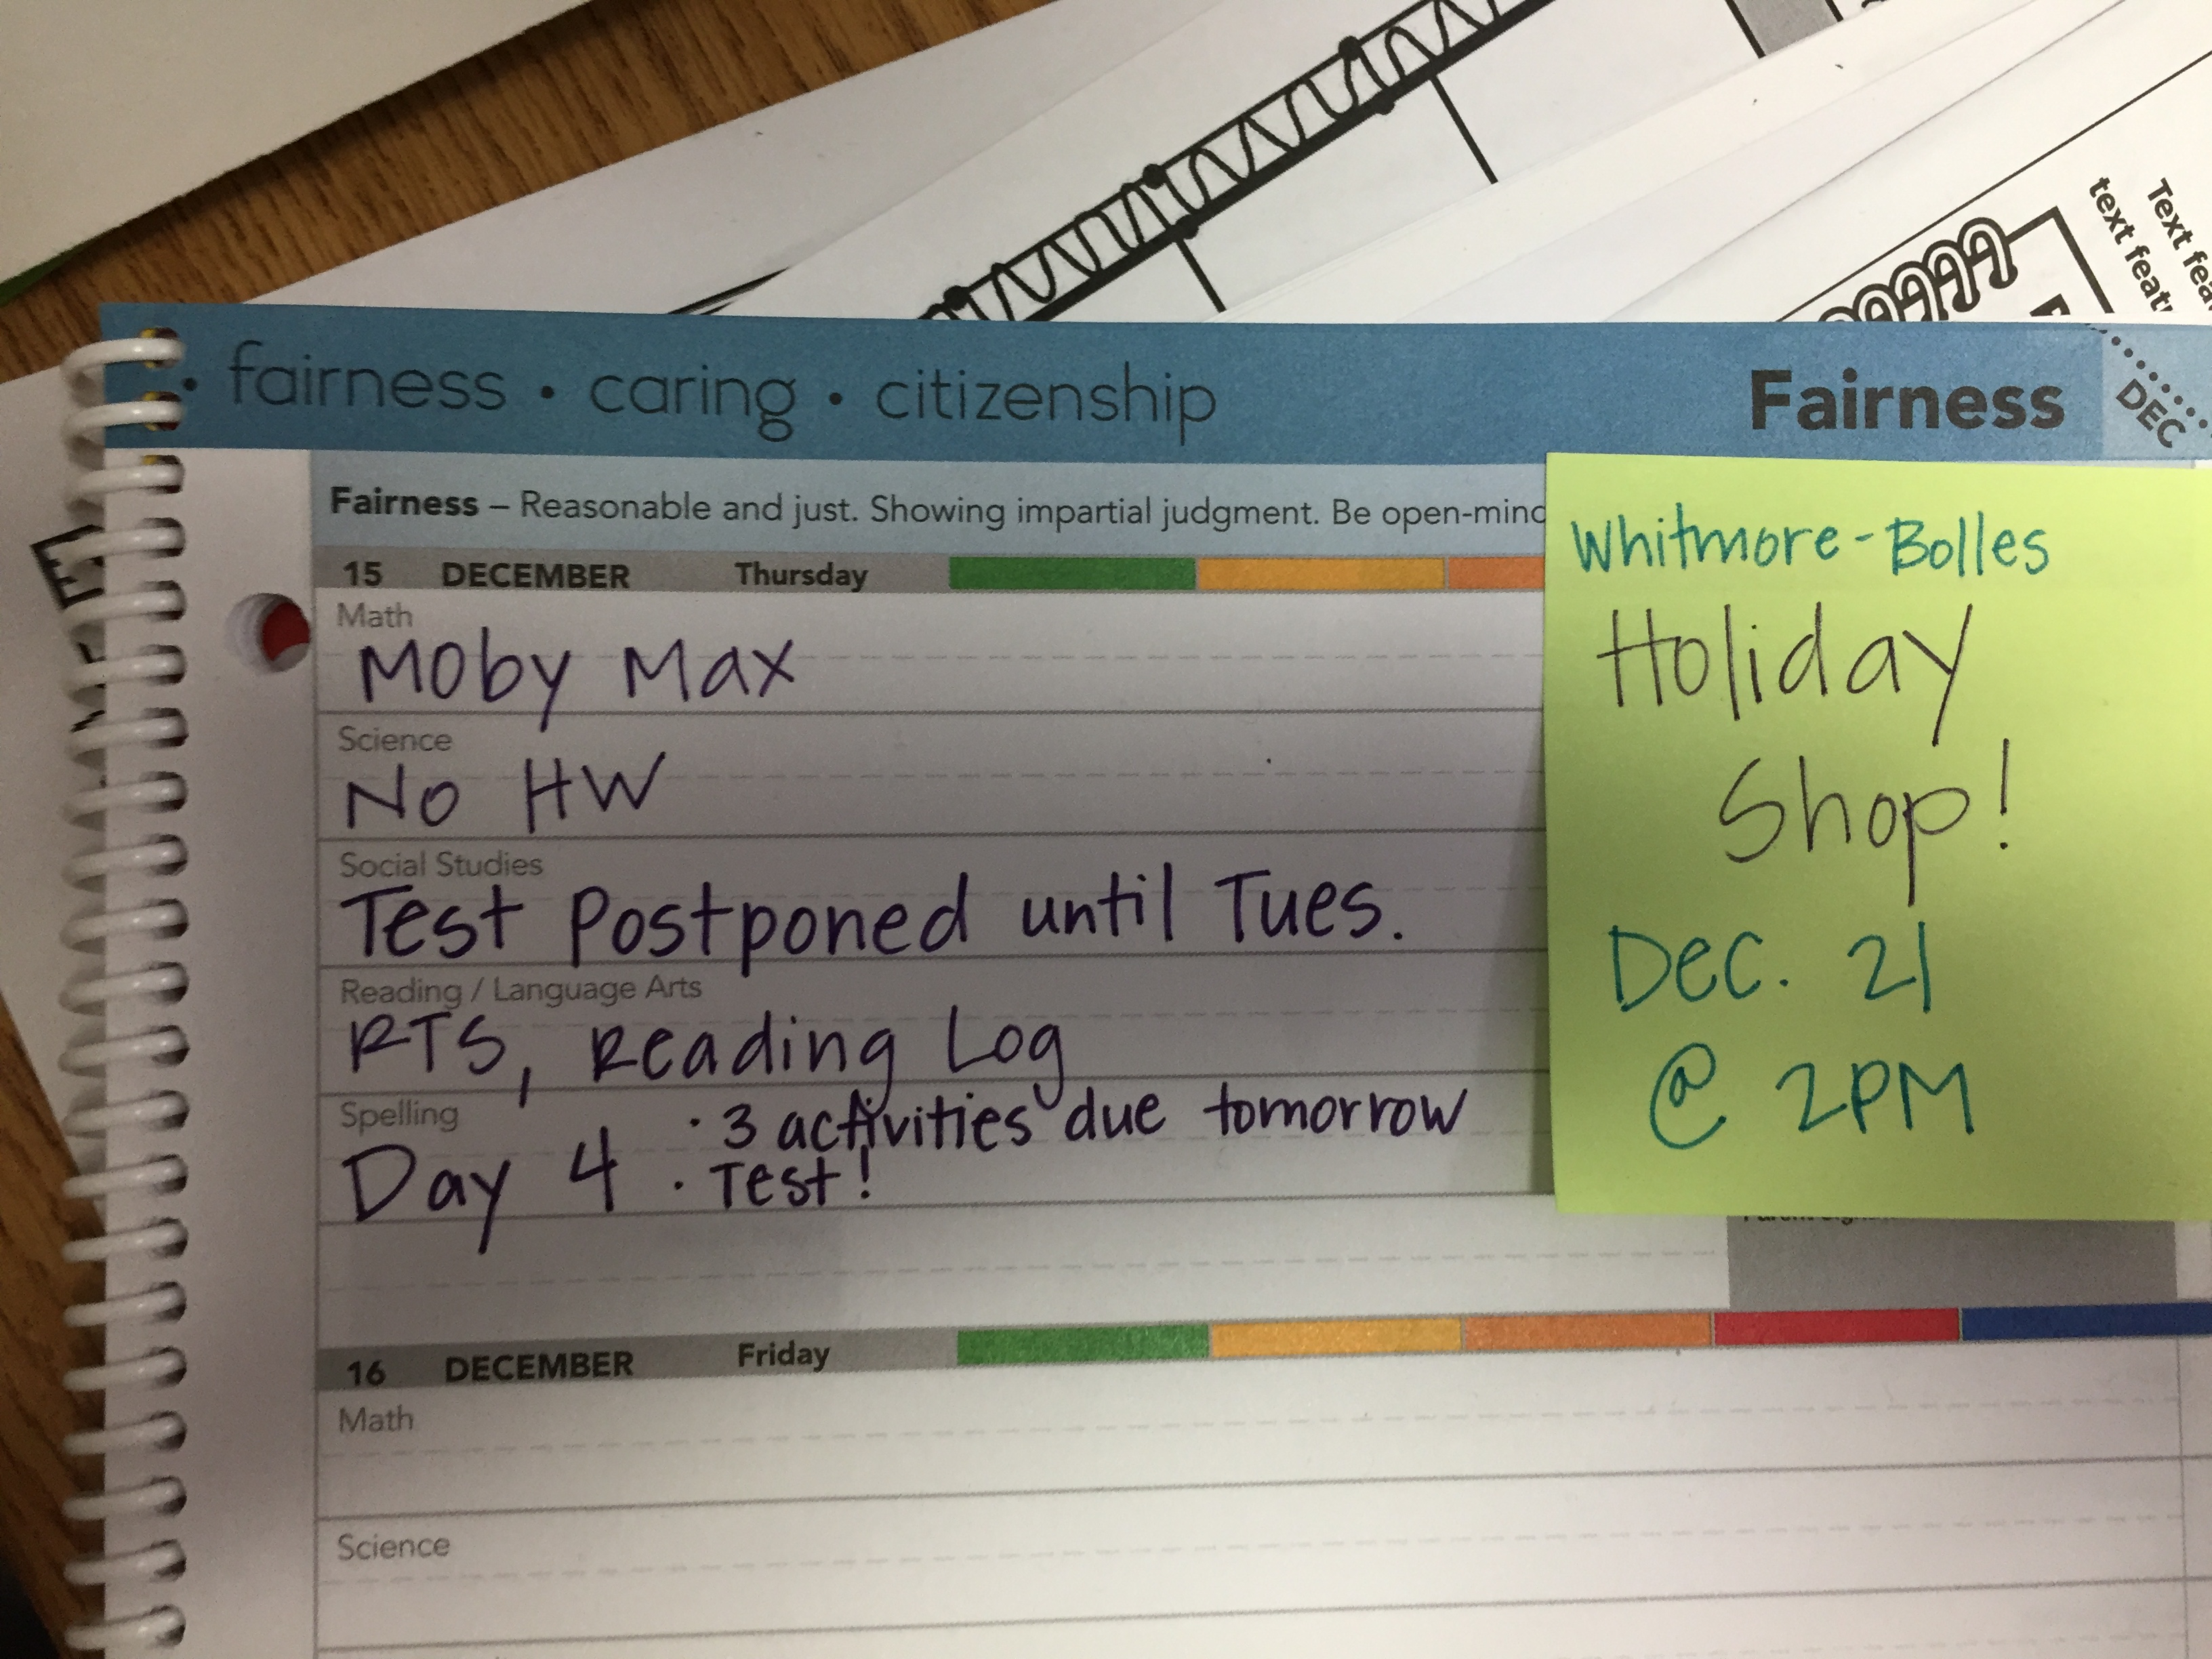 • fairness • caring • citizenship
Fairness
DEC
Text fea
text featu
Fairness – Reasonable and just. Showing impartial judgment. Be open-mind
15 DECEMBER Thursday
Math
Moby Max
Science
No HW
Social Studies
Test Postponed until Tues.
Reading / Language Arts
RTS, Reading Log
Spelling
· 3 activities due tomorrow
Day 4 · Test!
Whitmore-Bolles
Holiday
Shop!
Dec. 21
@ 2PM
16 DECEMBER Friday
Math
Science